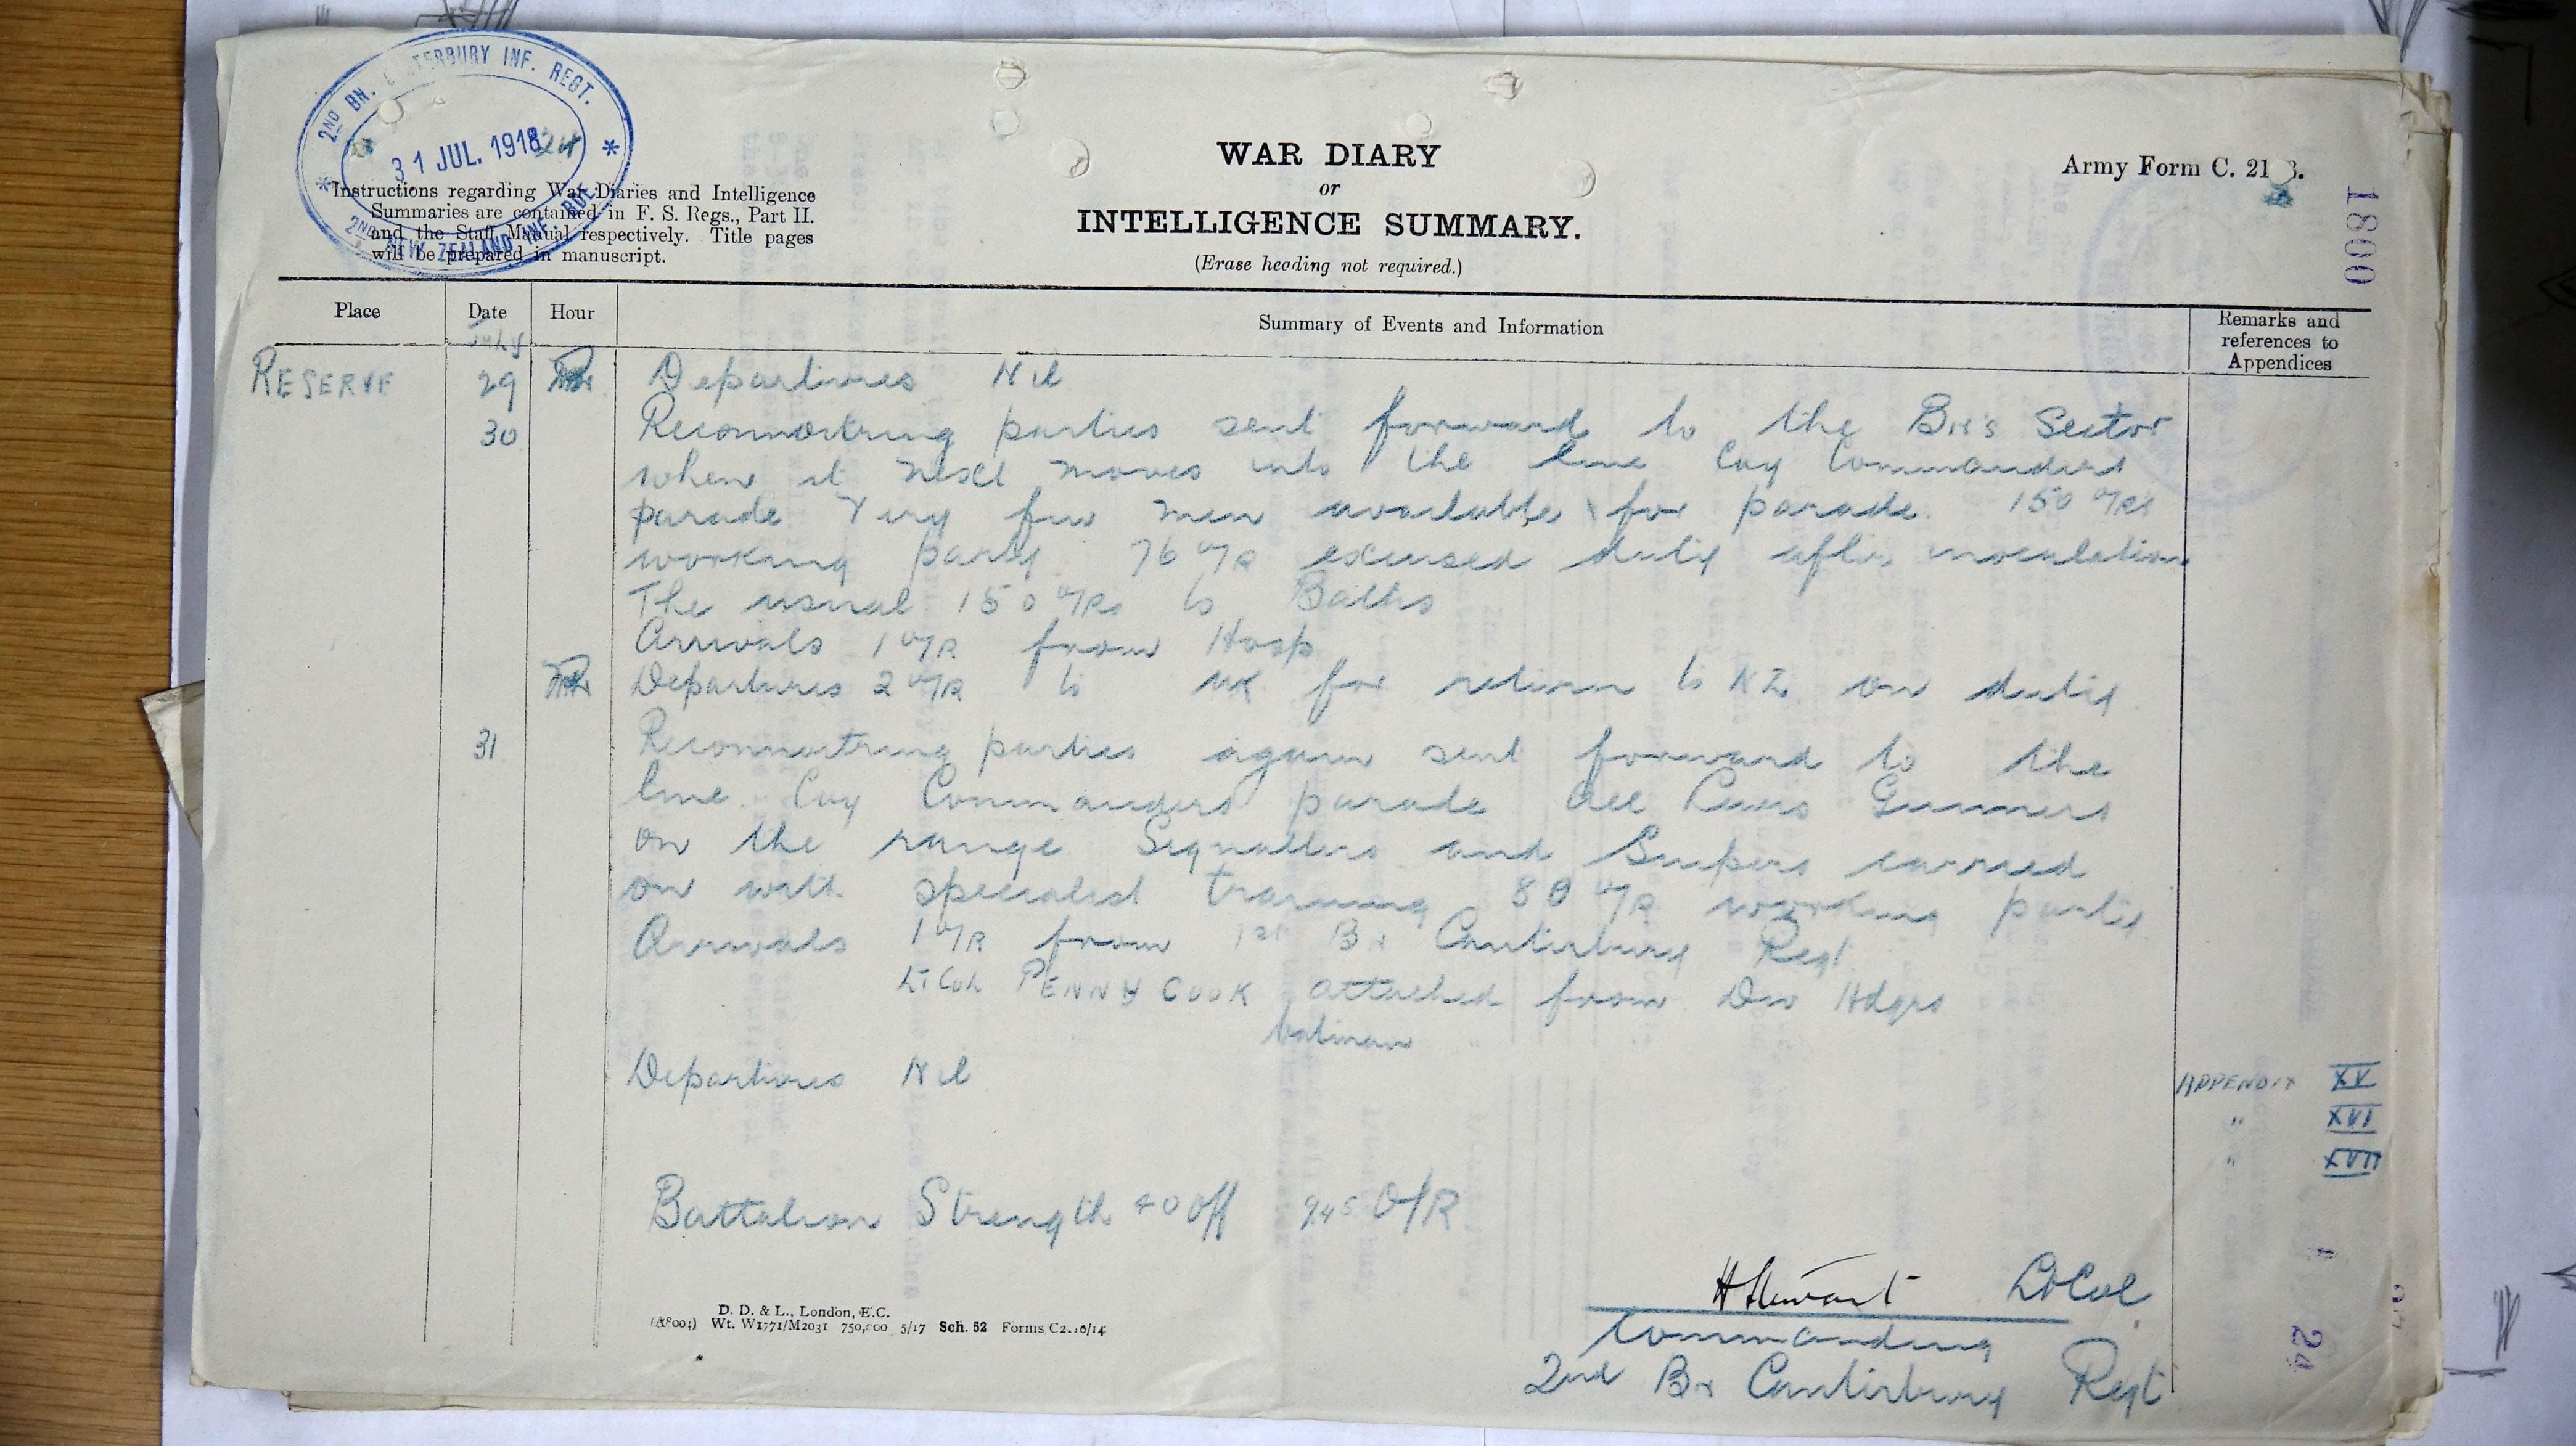 2ND BN. CANTERBURY INF. REGT.
31 JUL. 1918
2ND NEW ZEALAND INF. BDE.
Instructions regarding War Diaries and Intelligence
Summaries are contained in F. S. Regs., Part II.
and the Staff Manual respectively. Title pages
will be prepared in manuscript.
WAR DIARY
or
INTELLIGENCE SUMMARY.
(Erase heading not required.)
Army Form C. 21
1800
Place Date Hour Summary of Events and Information Remarks and references to Appendices
July
RESERVE 29 Departures Nil
30 Reconnoitring parties sent forward to the Bn's Sector
when it next moves into the line Coy Commanders
parade Very few men available for parade. 150 O/Rs
working party 76 O/R excused duty after inoculation
The usual 150 O/Rs to Baths
Arrivals 1 O/R from Hosp
Departures 2 O/R to UK for return to NZ on duty
31 Reconnoitring parties again sent forward to the
line. Coy Commanders parade All Lewis Gunners
on the range Signallers and Snipers carried
on with specialist training 80 O/R working party
Arrivals 1 O/R from 1st Bn Canterbury Regt
Lt Col PENNYCOOK attached from Div Hdqrs
batman "
Departures Nil
APPENDIX XV
" XVI
" XVII
Battalion Strength 40 Off 945 O/R
H Stewart Lt Col
Commanding
2nd Bn Canterbury Regt
D. D. & L., London, E.C.
Wt. W1771/M2031 750,000 5/17 Sch. 52 Forms C2118/14
24